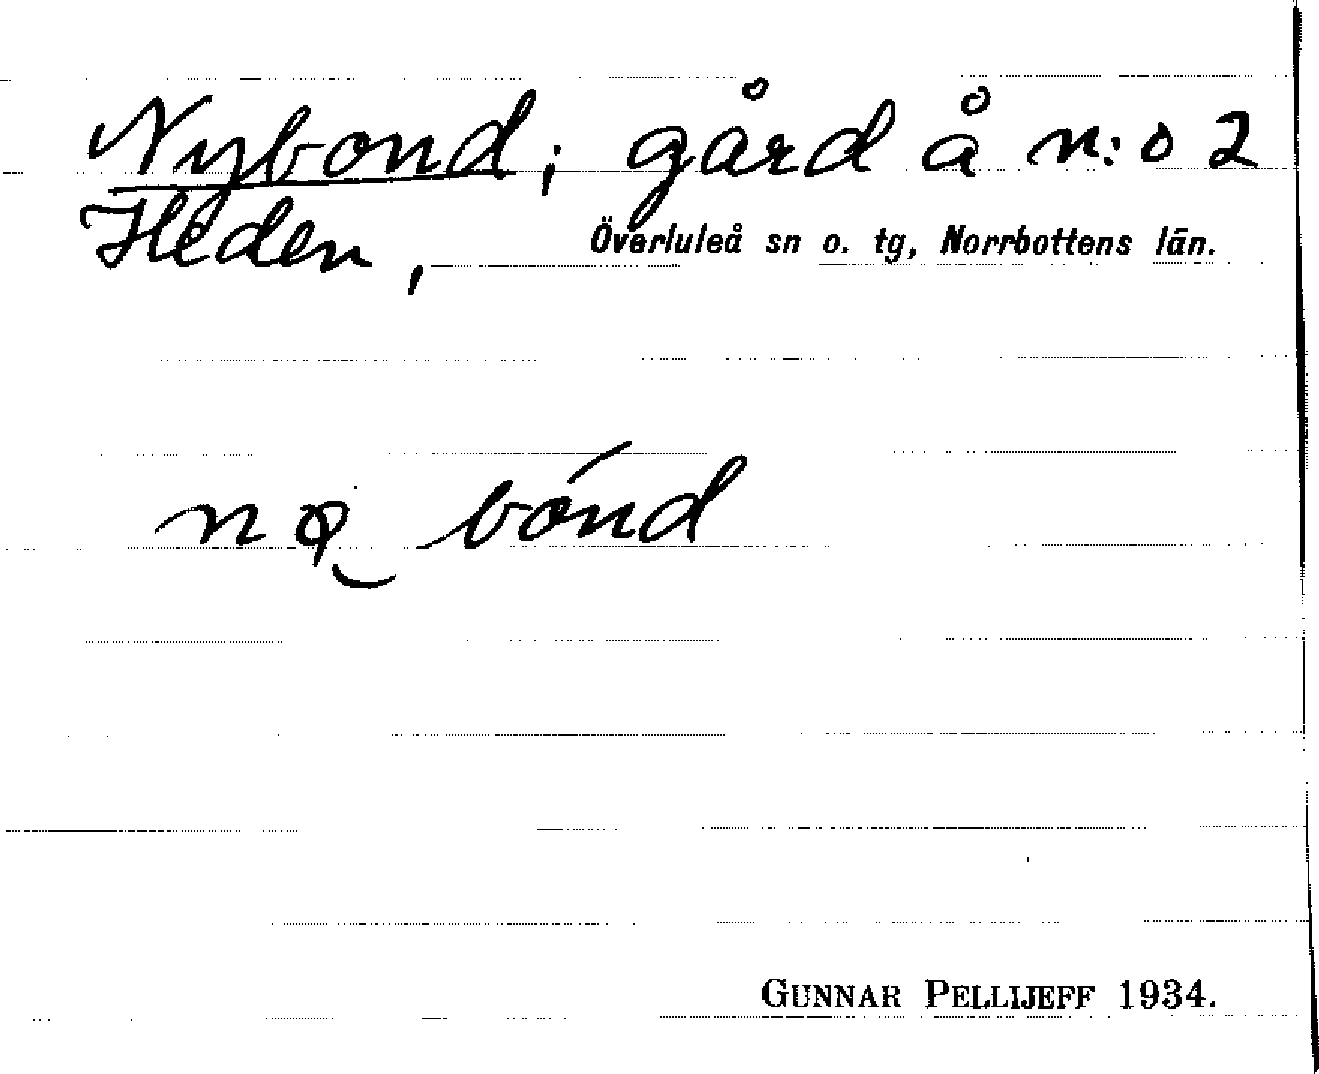 Nybond; gård å n:o 2
Heden, Överluleå sn o. tg, Norrbottens län.
bónd
GUNNAR PELLIJEFF 1934.